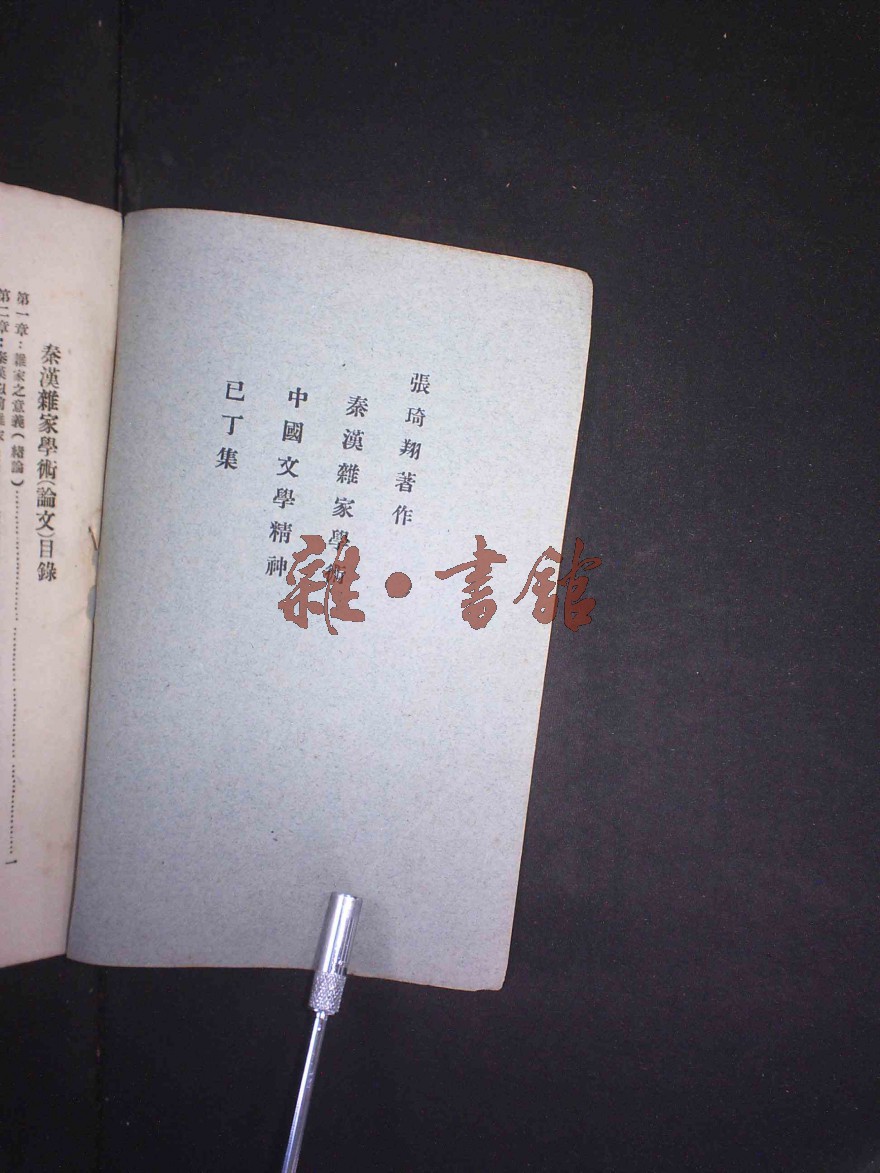 張琦翔著作
秦漢雜家學術
中國文學精神
已丁集
秦漢雜家學術(論文)目錄
第一章：雜家之意義(緒論)……………………一
第二章：秦漢
雜·書館